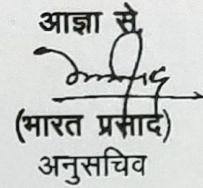 आज्ञा से,
(भारत प्रसाद)
अनुसचिव